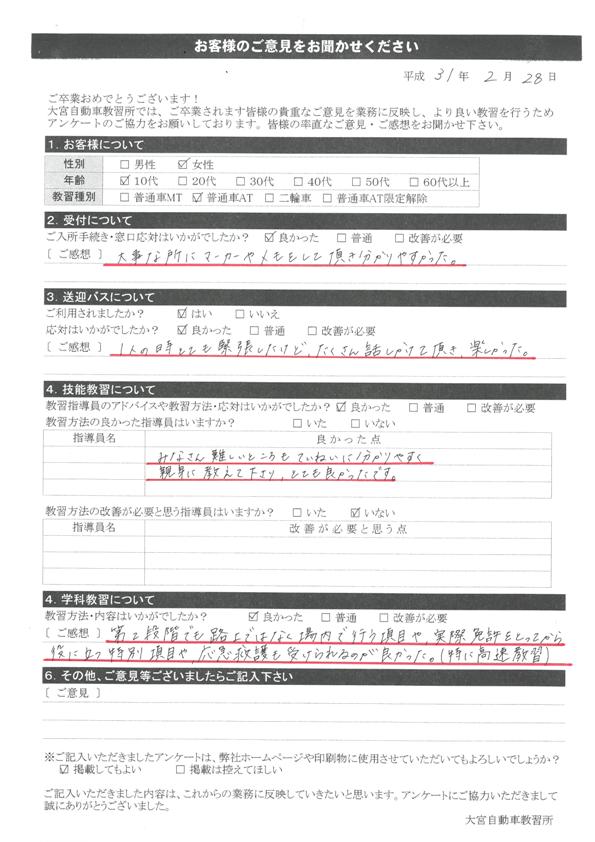 お客様のご意見をお聞かせください
平成 31 年 2 月 28 日
ご卒業おめでとうございます！
大宮自動車教習所では、ご卒業されます皆様の貴重なご意見を業務に反映し、より良い教習を行うため
アンケートのご協力をお願いしております。皆様の率直なご意見・ご感想をお聞かせ下さい。
1. お客様について
性別 □ 男性 ☑ 女性
年齢 ☑ 10代 □ 20代 □ 30代 □ 40代 □ 50代 □ 60代以上
教習種別 □ 普通車MT ☑ 普通車AT □ 二輪車 □ 普通車AT限定解除
2. 受付について
ご入所手続き・窓口応対はいかがでしたか？ ☑ 良かった □ 普通 □ 改善が必要
[ ご感想 ] 大事な所にマーカーやメモをして頂き分かりやすかった。
3. 送迎バスについて
ご利用されましたか？ ☑ はい □ いいえ
応対はいかがでしたか？ ☑ 良かった □ 普通 □ 改善が必要
[ ご感想 ] 1人の時とても緊張したけど、たくさん話しかけて頂き、楽しかった。
4. 技能教習について
教習指導員のアドバイスや教習方法・応対はいかがでしたか？ ☑ 良かった □ 普通 □ 改善が必要
教習方法の良かった指導員はいますか？ □ いた □ いない
指導員名 良かった点
みなさん難しいところもていねいに分かりやすく
親身に教えて下さり、とても良かったです。
教習方法の改善が必要と思う指導員はいますか？ □ いた ☑ いない
指導員名 改善が必要と思う点
4. 学科教習について
教習方法・内容はいかがでしたか？ ☑ 良かった □ 普通 □ 改善が必要
[ ご感想 ] 第2段階でも路上ではなく場内で行う項目や、実際免許をとってから
役に立つ特別項目や、応急救護も受けられるのが良かった。(特に高速教習)
6. その他、ご意見等ございましたらご記入下さい
[ ご意見 ]
※ご記入いただきましたアンケートは、弊社ホームページや印刷物に使用させていただいてもよろしいでしょうか？
☑ 掲載してもよい □ 掲載は控えてほしい
ご記入いただきました内容は、これからの業務に反映していきたいと思います。アンケートにご協力いただきまして
誠にありがとうございました。
大宮自動車教習所